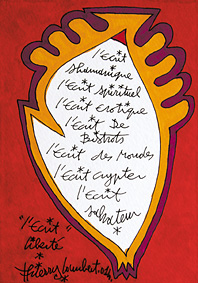 l'Ecrit
shamanique
l'Ecrit spirituel
l'Ecrit erotique
l'Ecrit De
Bistrots
l'Ecrit des Mondes
l'Ecrit crypter
l'Ecrit
salvateur
"l'Ecrit"
liberté
thierry